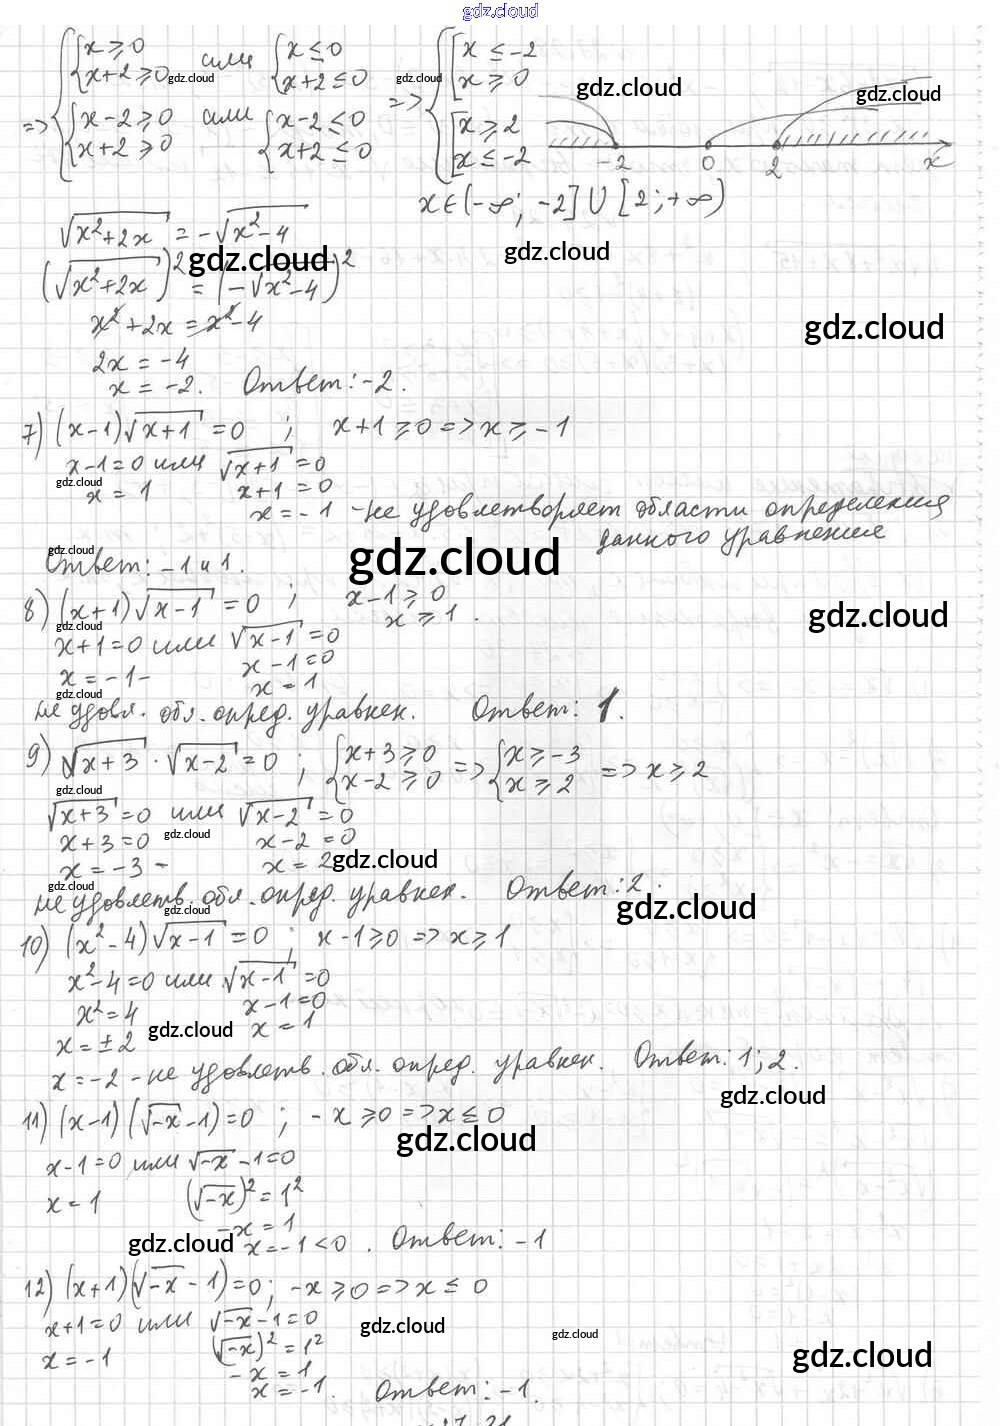 gdz.cloud
=> { { x ≥ 0 или { x ≤ 0 => { [ x ≤ -2
x+2 ≥ 0 gdz.cloud x+2 ≤ 0 gdz.cloud x ≥ 0 gdz.cloud gdz.cloud
{ x-2 ≥ 0 или { x-2 ≤ 0 [ x ≥ 2
x+2 ≥ 0 x+2 ≤ 0 x ≤ -2 -2 0 2 x
x ∈ (-∞; -2] ∪ [2; +∞)
√x²+2x = -√x²-4
gdz.cloud gdz.cloud
(√x²+2x)² = (-√x²-4)²
x²+2x = x²-4 gdz.cloud
2x = -4
x = -2. Ответ: -2.
7) (x-1)√x+1 = 0 ; x+1 ≥ 0 => x ≥ -1
x-1=0 или √x+1 = 0
gdz.cloud
x = 1 x+1 = 0
x = -1 - не удовлетворяет области определения
данного уравнения
gdz.cloud gdz.cloud
Ответ: -1 и 1.
8) (x+1)√x-1 = 0 ; x-1 ≥ 0
x ≥ 1. gdz.cloud
gdz.cloud
x+1=0 или √x-1 = 0
x-1=0
x = -1 - x = 1
gdz.cloud
не удовл. обл. опред. уравнен. Ответ: 1.
9) √x+3 · √x-2 = 0 ; { x+3 ≥ 0 => { x ≥ -3 => x ≥ 2
x-2 ≥ 0 x ≥ 2
gdz.cloud
√x+3 = 0 или √x-2 = 0
x+3=0 gdz.cloud x-2 = 0
x = -3 - x = 2 gdz.cloud
gdz.cloud
не удовлетв. обл. опред. уравнен. Ответ: 2.
gdz.cloud gdz.cloud
10) (x²-4)√x-1 = 0 ; x-1 ≥ 0 => x ≥ 1
x²-4=0 или √x-1 = 0
x²=4 x-1=0
x = ± 2 gdz.cloud x = 1
x = -2 - не удовлетв. обл. опред. уравнен. Ответ: 1; 2.
gdz.cloud
11) (x-1)(√-x -1) = 0 ; -x ≥ 0 => x ≤ 0
gdz.cloud
x-1=0 или √-x -1=0
x = 1 (√-x)² = 1²
-x = 1
gdz.cloud x = -1 < 0. Ответ: -1
12) (x+1)(√-x -1) = 0; -x ≥ 0 => x ≤ 0
x+1=0 или √-x -1=0 gdz.cloud gdz.cloud
x = -1 (√-x)² = 1² gdz.cloud
-x = 1
x = -1. Ответ: -1.